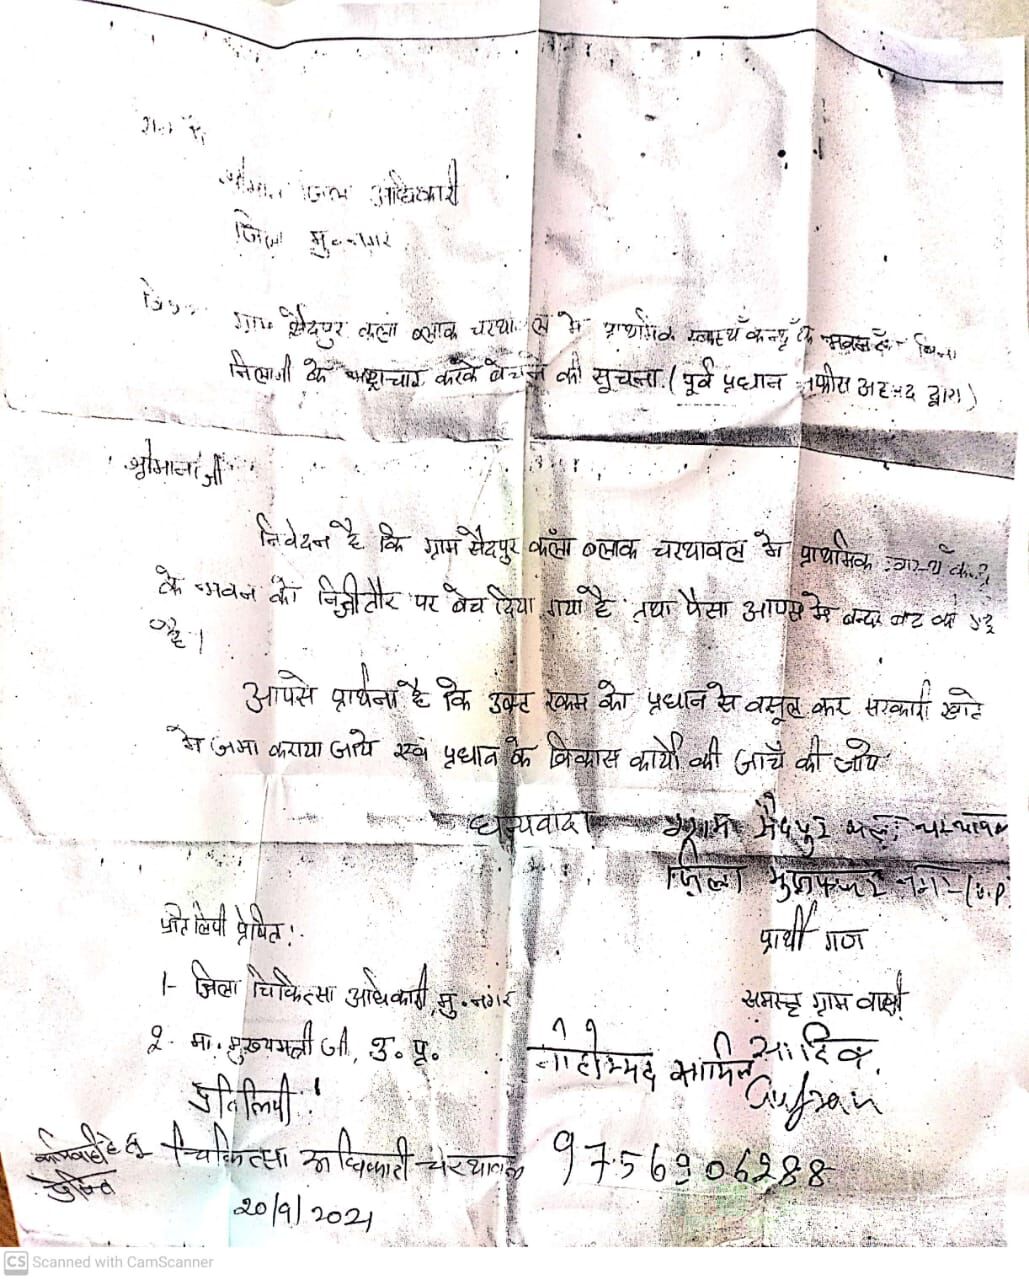 श्रीमान जिला अधिकारी
जिला मु० नगर
ग्राम सैदपुर कला ब्लाक चरथावल मे प्राथमिक स्वास्थ्य केन्द्र के भवन बिना
निलामी के भ्रष्टाचार करके बेचने की सूचना (पूर्व प्रधान अहमद द्वारा)
श्रीमान जी
निवेदन है कि ग्राम सैदपुर कलाँ ब्लाक चरथावल मे प्राथमिक
के भवन को निजी तौर पर बेच दिया गया है तथा पैसा आपस मे बन्दर बाट की गई
है।
आपसे प्रार्थना है कि उक्त रकम को प्रधान से वसूल कर सरकारी खाते
मे जमा कराया जाये एवं प्रधान के विकास कार्यो की जाचँ की जाये
धन्यवाद।
ग्राम सैदपुर कला चरथावल
जिला मुजफ्फर नगर (U.P
प्रतिलिपी प्रेषित:-
प्रार्थी गण
1- जिला चिकित्सा अधिकारी, मु. नगर
समस्त ग्राम वासी
2- मा. मुख्यमंत्री जी, उ. प्र.
मोहम्मद
Gufran
प्रतिलिपी!
चिकित्सा अधिकारी चरथावल
9756906288
20/9/2021
CS Scanned with CamScanner